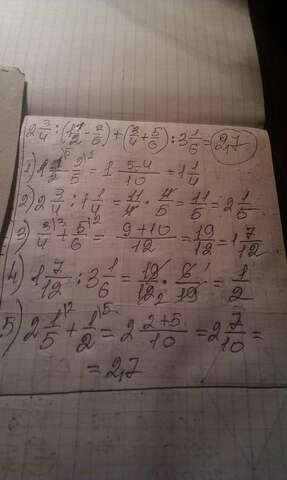 2 3/4 : (1 1/2 - 2/5) + (3/4 + 5/6) : 3 1/6 = 2,7
1) 1 1/2 \5 - 2/5 \2 = 1 5-4/10 = 1 1/4
2) 2 3/4 : 1 1/4 = 11/4 · 4/5 = 11/5 = 2 1/5
3) 3/4 \3 + 5/6 \2 = 9+10/12 = 19/12 = 1 7/12
4) 1 7/12 : 3 1/6 = 19/12 2 · 6/19 = 1/2
5) 2 1/5 \2 + 1/2 \5 = 2 2+5/10 = 2 7/10 =
= 2,7